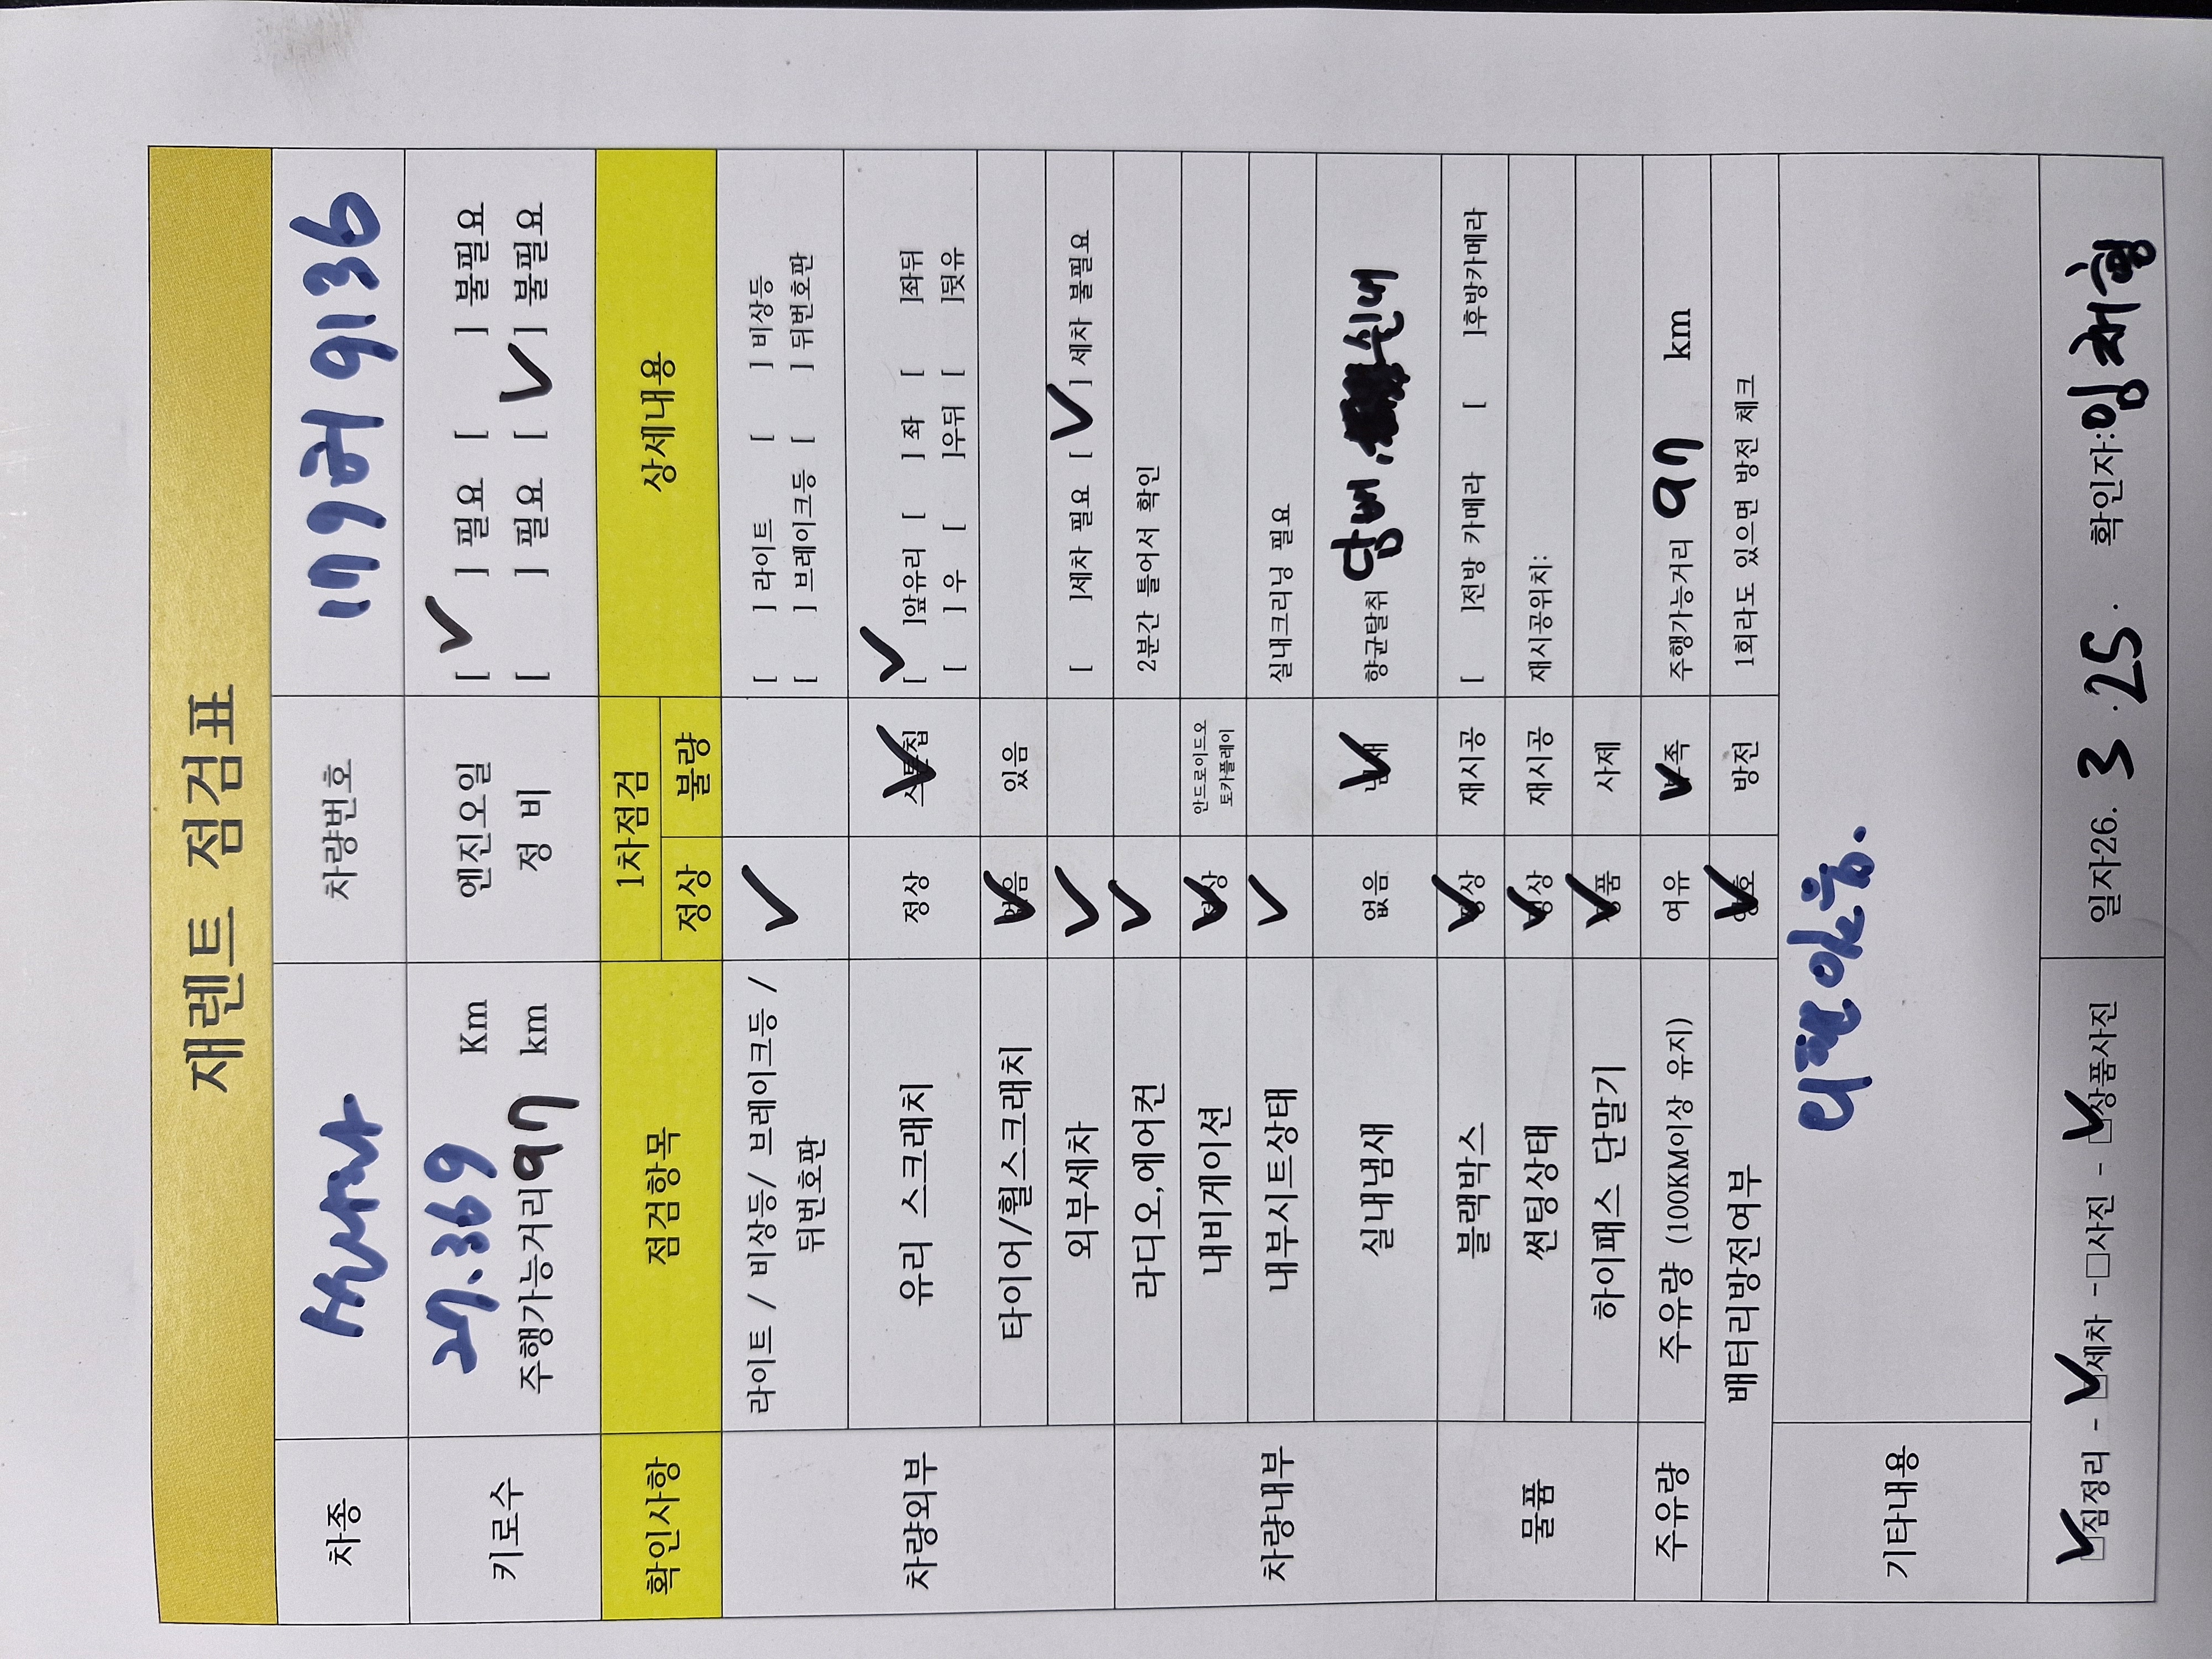 재렌트 점검표
차종 쏘나타 차량번호 179허 9136
키로수 27.369 Km 엔진오일 [ ✓ ] 필요 [ ] 불필요
주행가능거리 97 km 정 비 [ ] 필요 [ ✓ ] 불필요
확인사항 점검항목 1차점검 상세내용
정상 불량
차량외부 라이트 / 비상등/ 브레이크등 / 뒤번호판 ✓ [ ] 라이트 [ ] 비상등
[ ] 브레이크등 [ ] 뒤번호판
유리 스크래치 정상 스톤칩 ✓ [ ✓ ]앞유리 [ ] 좌 [ ]좌뒤
[ ] 우 [ ]우뒤 [ ]뒷유
타이어/휠스크래치 없음 ✓ 있음
외부세차 ✓ [ ]세차 필요 [ ✓ ] 세차 불필요
차량내부 라디오,에어컨 ✓ 2분간 틀어서 확인
내비게이션 정상 ✓ 안드로이드오토카플레이
내부시트상태 ✓ 실내크리닝 필요
실내냄새 없음 냄새 ✓ 향균탈취 담배,
물품 블랙박스 정상 ✓ 재시공 [ ]전방 카메라 [ ]후방카메라
썬팅상태 정상 ✓ 재시공 재시공위치:
하이패스 단말기 정품 ✓ 사제
주유량 주유량 (100KM이상 유지) 여유 부족 ✓ 주행가능거리 97 km
배터리방전여부 양호 ✓ 방전 1회라도 있으면 방전 체크
기타내용
✓ 짐정리 - ✓ 세차 - □사진 - ✓ 상품사진 일자26. 3 .25. 확인자:임채형